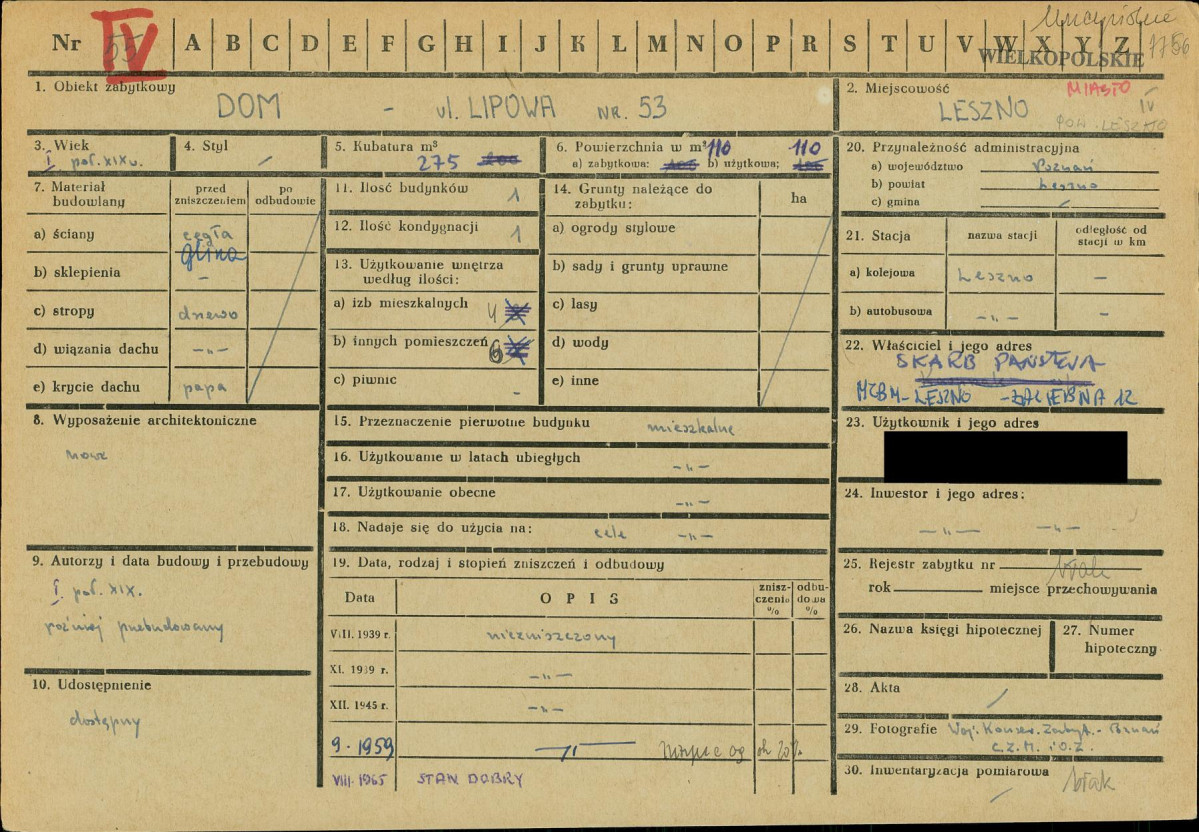 Nr 55 IV A B C D E F G H I J K L M N O P R S T U V W X Y Z 1756
WIELKOPOLSKIE
1. Obiekt zabytkowy
DOM - ul. LIPOWA NR. 53
2. Miejscowość MIASTO
LESZNO IV
POW. LESZNO
3. Wiek
I poł. XIX w.
4. Styl
/
5. Kubatura m³
275
6. Powierzchnia w m² 110 110
a) zabytkowa: b) użytkowa:
20. Przynależność administracyjna
a) województwo Poznań
b) powiat Leszno
c) gmina /
7. Materiał budowlany
przed zniszczeniem
po odbudowie
a) ściany cegła
glina
b) sklepienia -
c) stropy drewo
d) wiązania dachu -„-
e) krycie dachu papa
11. Ilość budynków 1
12. Ilość kondygnacji 1
13. Użytkowanie wnętrza
według ilości:
a) izb mieszkalnych 4
b) innych pomieszczeń 6
c) piwnic -
14. Grunty należące do
zabytku:
ha
a) ogrody stylowe
b) sady i grunty uprawne
c) lasy
d) wody
e) inne
21. Stacja
nazwa stacji
odległość od
stacji w km
a) kolejowa Leszno -
b) autobusowa -„- -
22. Właściciel i jego adres
SKARB PAŃSTWA
MZBM-LESZNO
8. Wyposażenie architektoniczne
nowe
15. Przeznaczenie pierwotne budynku mieszkalne
16. Użytkowanie w latach ubiegłych -„-
17. Użytkowanie obecne -„-
18. Nadaje się do użycia na: cele -„-
23. Użytkownik i jego adres
24. Inwestor i jego adres:
-„- -„-
9. Autorzy i data budowy i przebudowy
I. poł. XIX.
później przebudowany
19. Data, rodzaj i stopień zniszczeń i odbudowy
Data
OPIS
znisz-
czenia
%
odbu-
dowa
%
VIII. 1939 r. niezniszczony
XI. 1939 r. -„-
XII. 1945 r. -„-
9.1959 -„- 20%
VIII.1965 STAN DOBRY
25. Rejestr zabytku nr brak
rok miejsce przechowywania
26. Nazwa księgi hipotecznej
27. Numer
hipoteczny
10. Udostępnienie
dostępny
28. Akta /
29. Fotografie Woj. Konserw. Zabyt. - Poznań
C.Z.M. i O.Z.
30. Inwentaryzacja pomiarowa brak
/